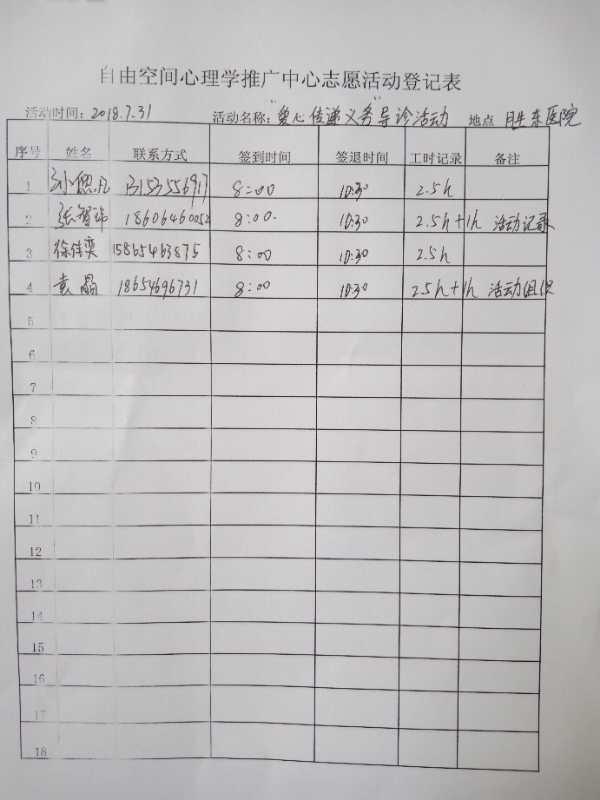 自由空间心理学推广中心志愿活动登记表
活动时间：2018.7.31 活动名称："爱心传递义务"导诊活动 地点 胜东医院
序号 姓名 联系方式 签到时间 签退时间 工时记录 备注
1 孙偲凡 13153556917 8:00 10:30 2.5h
2 张智 18606460052 8:00 10:30 2.5h+1h 活动记录
3 徐佳奕 15865463875 8:00 10:30 2.5h
4 袁晶 18654696731 8:00 10:30 2.5h+1h 活动组织
5
6
7
8
9
10
11
12
13
14
15
16
17
18